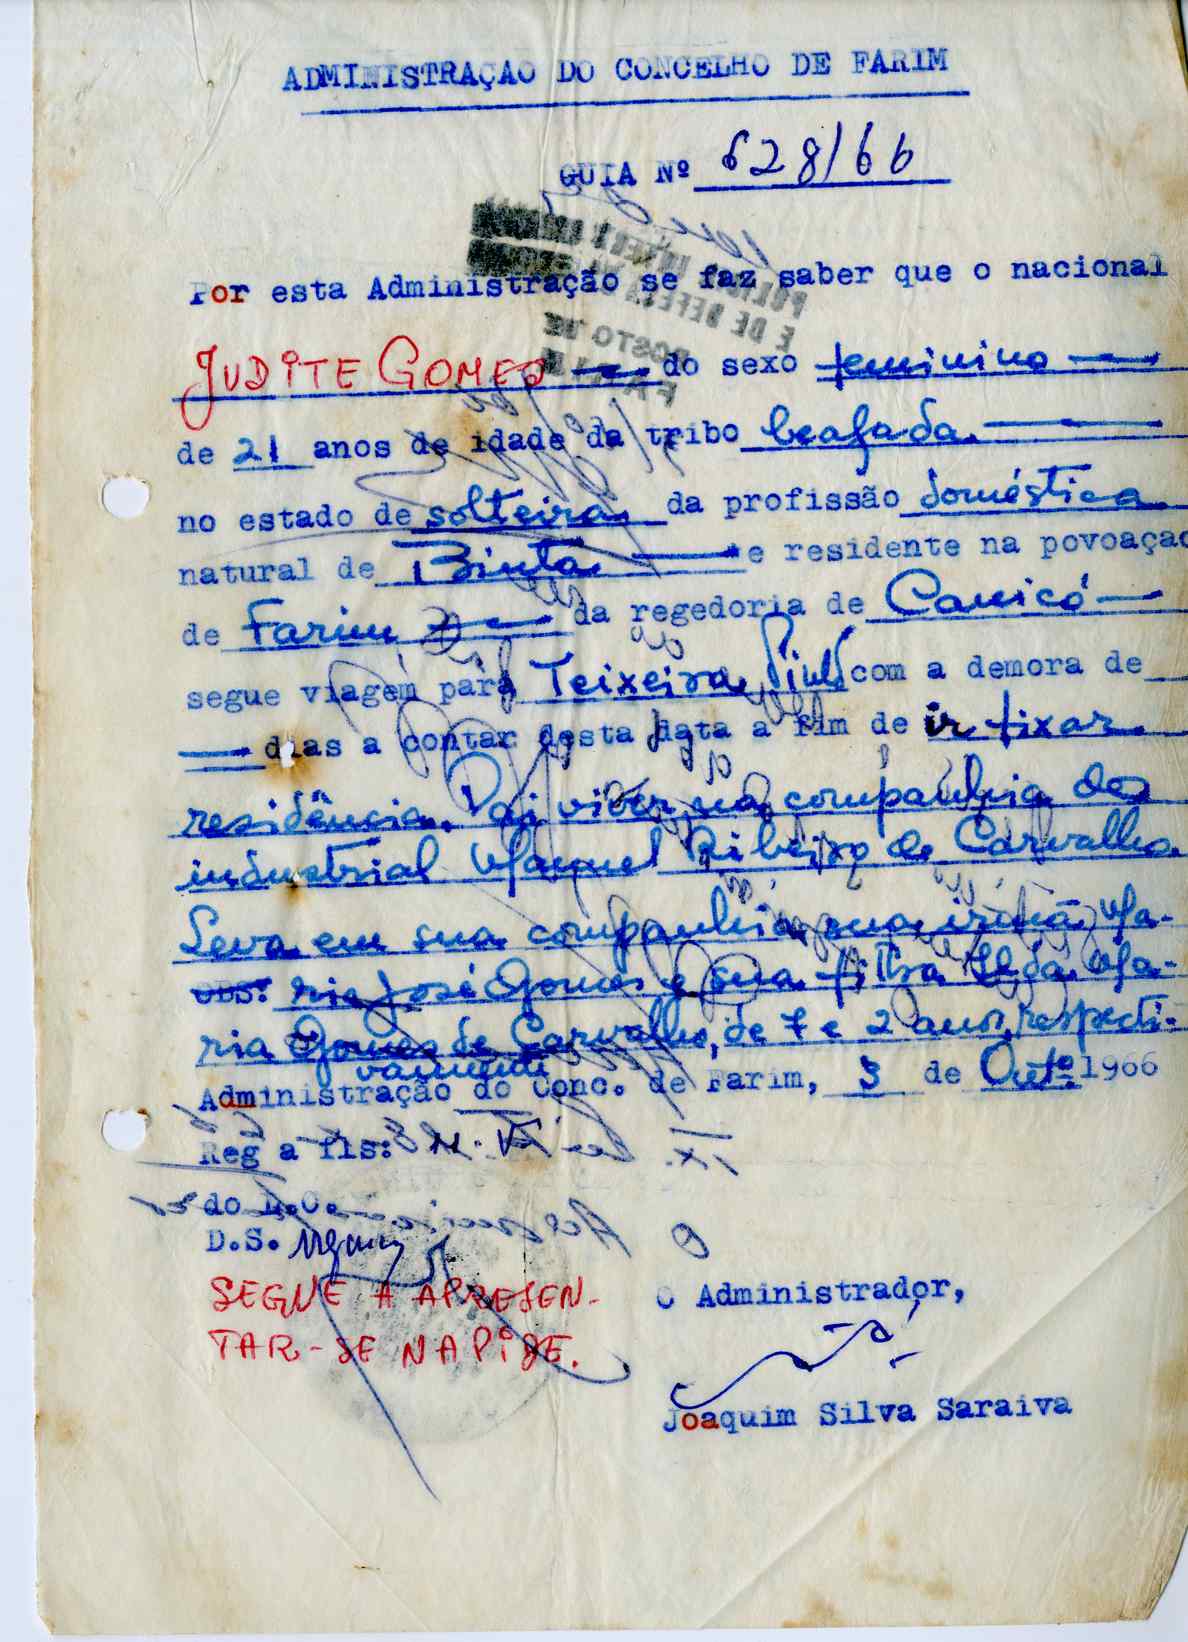 ADMINISTRAÇAO DO CONCELHO DE FARIM
GUIA Nº 628/66
Por esta Administração se faz saber que o nacional
JUDITE GOMES do sexo feminino
de 21 anos de idade da tribo beafada.
no estado de solteira da profissão doméstica
natural de Binta e residente na povoaçao
de Farim da regedoria de Canicó
segue viagem para Teixeira Pinto com a demora de
dias a contar desta data a fim de ir fixar
residência. Vai viver na companhia do
industrial Manuel Ribeiro de Carvalho.
Leva em sua companhia sua irmã Ma-
OBS: ria José Gomes e sua filha Ilda Ma-
ria Gomes de Carvalho, de 7 e 2 anos, respecti-
vamente
Administração do Conc. de Farim, 3 de Outº. 1966
Reg a fls:
do L.O.
D.S.
SEGUE A APRESEN-
TAR-SE NA PIDE.
O Administrador,
Joaquim Silva Saraiva
POLÍCIA
E DE DEFESA
POSTO DE
FARIM